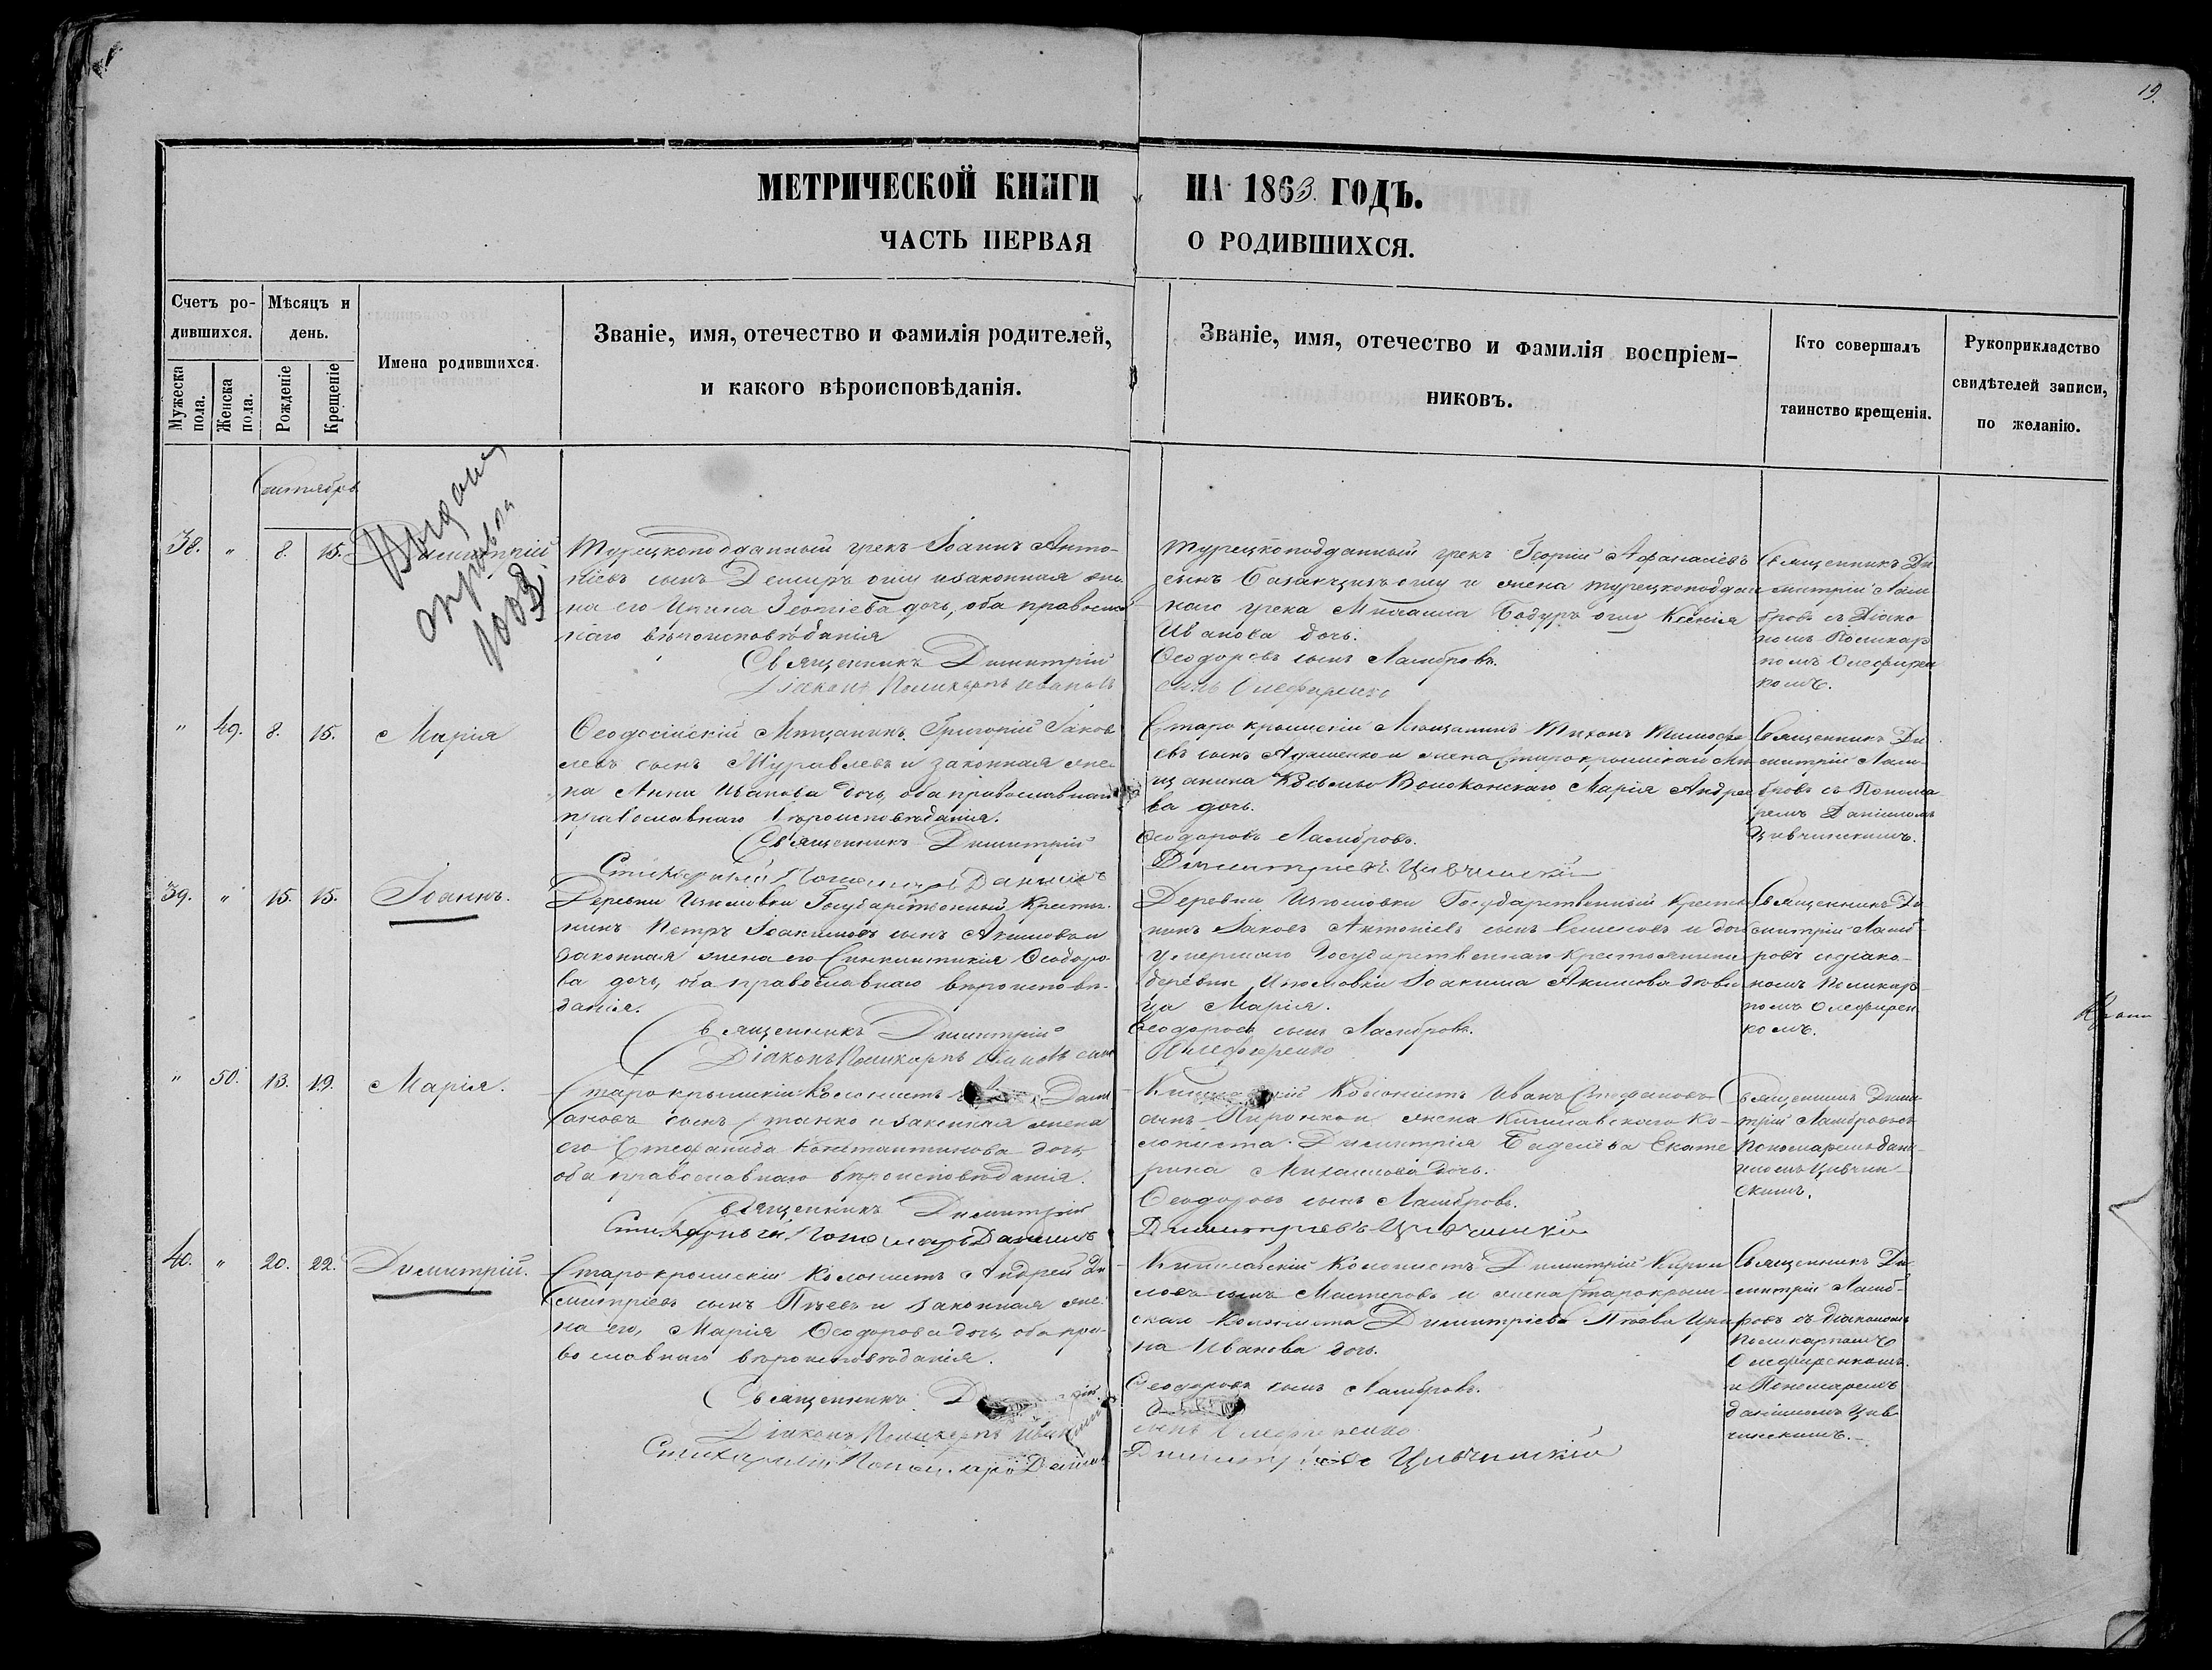 19.
МЕТРИЧЕСКОЙ КНИГИ НА 1863 ГОДЪ.
ЧАСТЬ ПЕРВАЯ О РОДИВШИХСЯ.
Счетъ ро-
дившихся.
Мужеска пола.
Женска пола.
Мѣсяцъ и
день.
Рожденіе
Крещеніе
Имена родившихся.
Званіе, имя, отечество и фамилія родителей,
и какого вѣроисповѣданія.
Званіе, имя, отечество и фамилія воспріем-
никовъ.
Кто совершалъ
таинство крещенія.
Рукоприкладство
свидѣтелей записи,
по желанію.
38. " 8. 15. Димитрій
Турецкоподданный грекъ Іоаннъ Анто-
ніевъ сынъ Демиръ оглу и законная же-
на его Ирина дочь, оба православ
наго вѣроисповѣданія
Священникъ Димитрій
Діаконъ Поликарпъ Ивановъ
Турецкоподданный грекъ Георгій Афанасіевъ
сынъ и жена турецкоподдан
наго грека Михаила Бодуръ оглу Ксенія
Иванова дочь.
Ѳеодоровъ сынъ Ламбровъ.
сынъ Олефиренко
Священникъ Ди
митрій Лам
бровъ съ Діако
номъ Поликар
помъ Олефирен
комъ.
" 49. 8. 15. Марія
Ѳеодосійскій Мѣщанинъ Григорій Іаков
левъ сынъ Журавлевъ и законная же-
на Анна Иванова дочь, оба православнаго
православнаго вѣроисповѣданія.
Священникъ Димитрій
Стихарный Пономарь Даніилъ
Старокрымскій Мѣщанинъ Тихонъ Тимофе
евъ сынъ Адаменко и жена Старокрымскаго Мѣ
щанина Волоконскаго Марія Андрее
ва дочь.
Ѳеодоровъ Ламбровъ.
Димитріевъ Цивчинскій
Священникъ Ди
митрій Лам-
бровъ съ Понома
ремъ Даніиломъ
Цивчинскимъ.
39. " 15. 15. Іоаннъ.
Деревни Изюмовки Государственный Крестья-
нинъ Петръ Іоакимовъ сынъ Акимовъ и
законная жена его Синклитикія Ѳеодоро-
ва дочь, оба православнаго вѣроисповѣ-
данія.
Священникъ Димитрій
Діаконъ Поликарпъ Ивановъ сынъ
Деревни Изюмовки Государственный Крестья
нинъ Іаковъ Антоніевъ сынъ и дочь
умершаго Государственнаго Крестьянина
деревни Изюмовки Іоакима Акимова дѣви
ца Марія.
Ѳеодоровъ сынъ Ламбровъ.
Олефиренко
Священникъ Ди
митрій Ламб-
ровъ съ діако-
номъ Поликар
помъ Олефирен
комъ.
" 50. 13. 19. Марія.
Старокрымскій Колонистъ
сынъ Станко и законная жена
его Стефанида Константинова дочь
оба православнаго вѣроисповѣданія.
Священникъ Димитрій
Стихарный Пономарь Даніилъ
Колонистъ Иванъ Стефановъ
сынъ Пиронко и жена Кишлавскаго Ко-
лониста Димитрія Екате
рина Михаилова дочь.
Ѳеодоровъ сынъ Ламбровъ.
Димитріевъ Цивчинскій
Священникъ Дими
трій Ламбровъ съ
Пономаремъ Дані-
иломъ Цивчин-
скимъ.
40. " 20. 22. Димитрій.
Старокрымскій Колонистъ Андрей Ди
митріевъ сынъ и законная же-
на его, Марія Ѳеодорова дочь, оба пра-
вославнаго вѣроисповѣданія.
Священникъ
Діаконъ Поликарпъ Ивановъ
Стихарный Пономарь Даніилъ
Кишлавскій Колонистъ Димитрій Кирил
ловъ сынъ Мастеровъ и жена Старокрым-
скаго Колониста Димитріева Ири
на Иванова дочь.
Ѳеодоровъ сынъ Ламбровъ.
сынъ Олефиренко
Димитріевъ Цивчинскій
Священникъ Ди
митрій Ламб-
ровъ съ діакономъ
Поликарпомъ
Олефиренкомъ.
и Пономаремъ
Даніиломъ Цив-
чинскимъ.